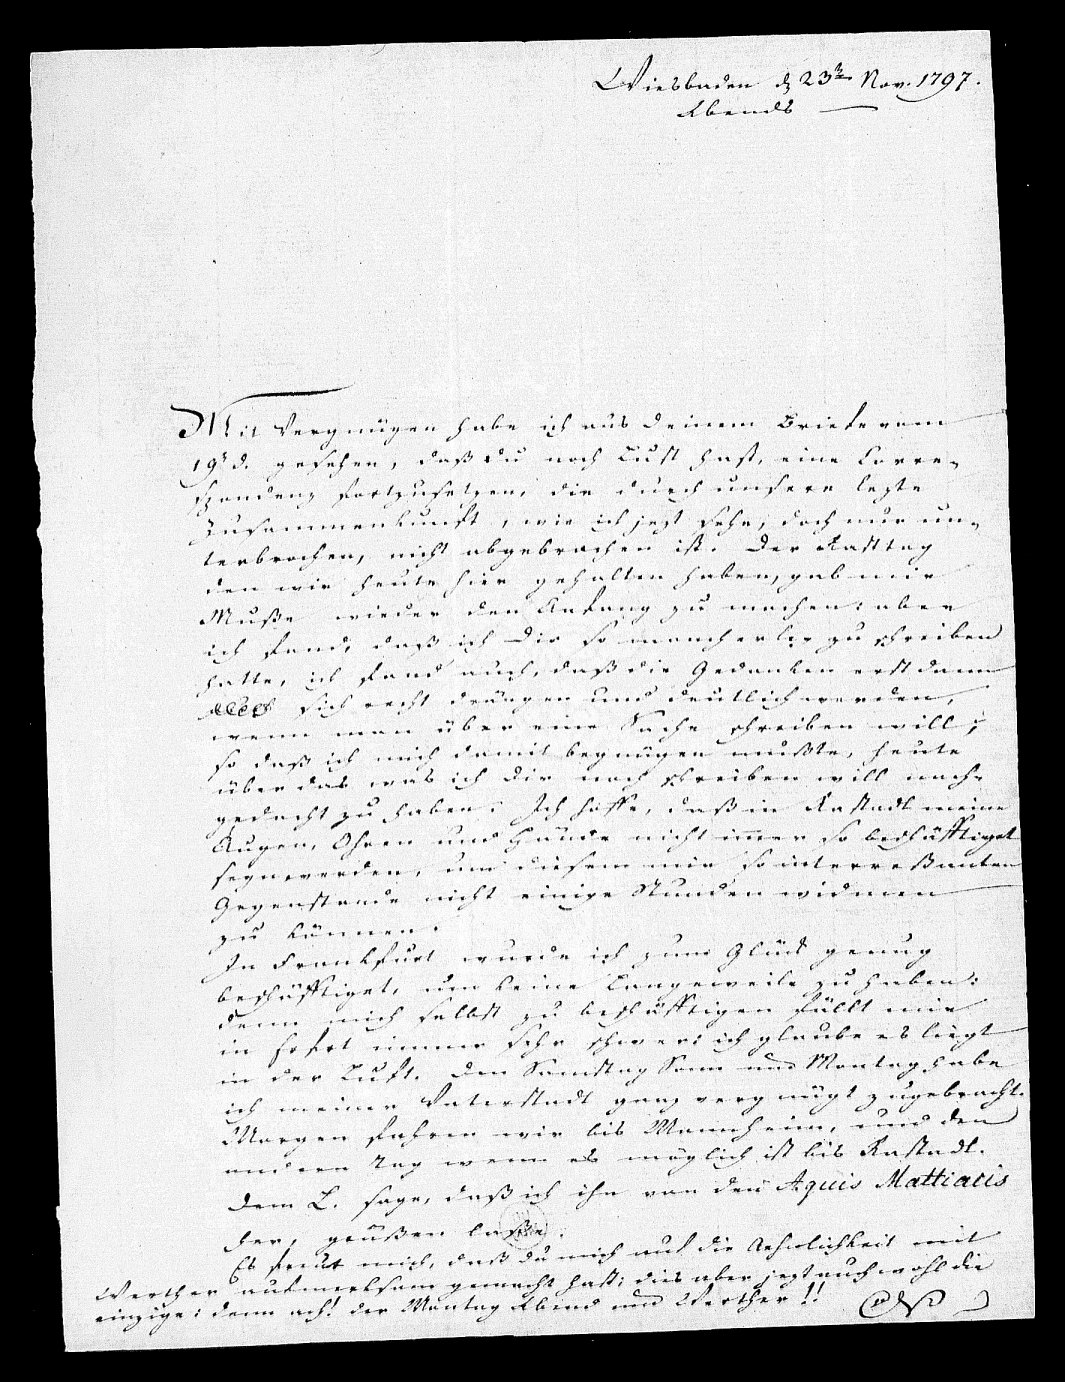 Wiesbaden d 23t Nov. 1797.
Abends —
Mit Vergnügen habe ich aus deinem Briefe vom
19t d. gesehen, daß du noch Lust hast, eine Corre-
spondenz fortzusetzen, die durch unsere lezte
Zusammenkunft, wie ich jezt sehe, doch nur un-
terbrochen, nicht abgebrochen ist. Der Rasttag
den wir heute hier gehalten haben, gab mir
Muße wieder den Anfang zu machen: aber
ich fand, daß ich Dir so mancherley zu schreiben
hatte, ich fand auch, daß die Gedanken erst dann
sich recht drängen und deutlich werden,
wenn man über eine Sache schreiben will;
so daß ich mich damit begnügen mußte, heute
über das was ich dir noch schreiben will nach-
gedacht zu haben. Ich hoffe, daß in Rastadt meine
Augen, Ohren und Hände nicht immer so beschäfftiget
seyn werden, um diesem mir so interreßanten
Gegenstande nicht einige Stunden widmen
zu können.
In Frankfurt wurde ich zum Glück genug
beschäfftiget, um keine Langeweile zu haben:
denn mich selbst zu beschäfftigen fällt mir
in immer sehr schwer: ich glaube es liegt
in der Luft. Den Samstag Sonn und Montag habe
ich meiner Vaterstadt ganz vergnügt zugebracht.
Morgen fahren wir bis Mannheim, und den
andern Tag wenn es möglich ist bis Rastadt.
Dem L. sage, daß ich ihn von den Aquis Mattiacis
her, grüßen laße.
Es freut mich, daß du mich auf die Aehnlichkeit mit
Werther aufmerksam gemacht hast: dies aber jezt auch wohl die
einzige: denn ach! der Montag Abend und Werther!!